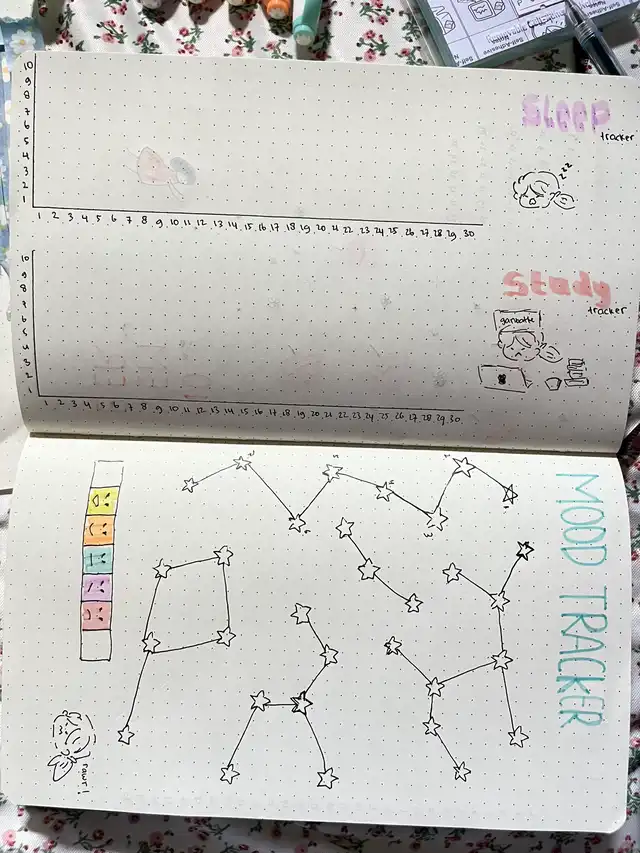 Self-Adhesive
Sleep
tracker
zzz
10
9
8
7
6
5
4
3
2
1
1 2 3 4 5 6 7 8 9 10 11 12 13 14 15 16 17 18 19 20 21 22 23 24 25 26 27 28 29 30
Study
tracker
ganbatte
10
9
8
7
6
5
4
3
2
1 2 3 4 5 6 7 8 9 10 11 12 13 14 15 16 17 18 19 20 21 22 23 24 25 26 27 28 29 30
MOOD TRACKER
1
3
4
5
6
rawr!